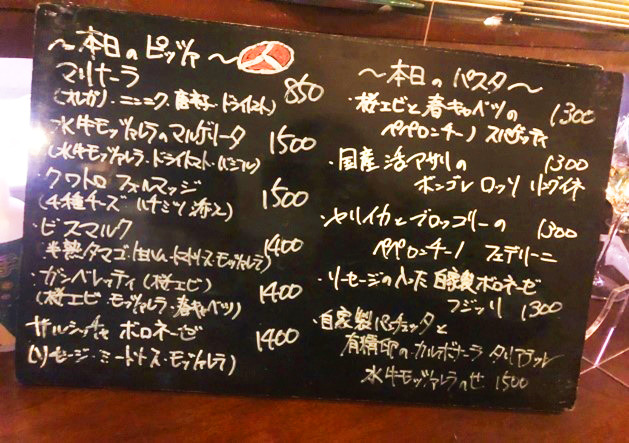 ～本日のピッツァ～
マリナーラ 850
(オレガノ・ニンニク・唐辛子・ドライトマト)
水牛モッツァレラのマルゲリータ 1500
(水牛モッツァレラ・ドライトマト・バジル)
・クワトロ フォルマッジ 1500
(4種チーズ ハチミツ添え)
・ビスマルク 1400
半熟タマゴ・生ハム・トマトソース・モッツァレラ)
・ガンベレッティ(桜エビ) 1400
(桜エビ・モッツァレラ・春キャベツ)
サルシッチャ ボロネーゼ 1400
(ソーセージ・ミートソース・モッツァレラ)
～本日のパスタ～
・桜エビと春キャベツの 1300
ペペロンチーノ スパゲッティ
・国産活アサリの 1300
ボンゴレ ロッソ リングイネ
・ヤリイカとブロッコリーの 1300
ペペロンチーノ フェデリーニ
・ソーセージの入った自家製ボロネーゼ
フジッリ 1300
・自家製パンチェッタと
有精卵のカルボナーラ タリアテッレ
水牛モッツァレラのせ 1500